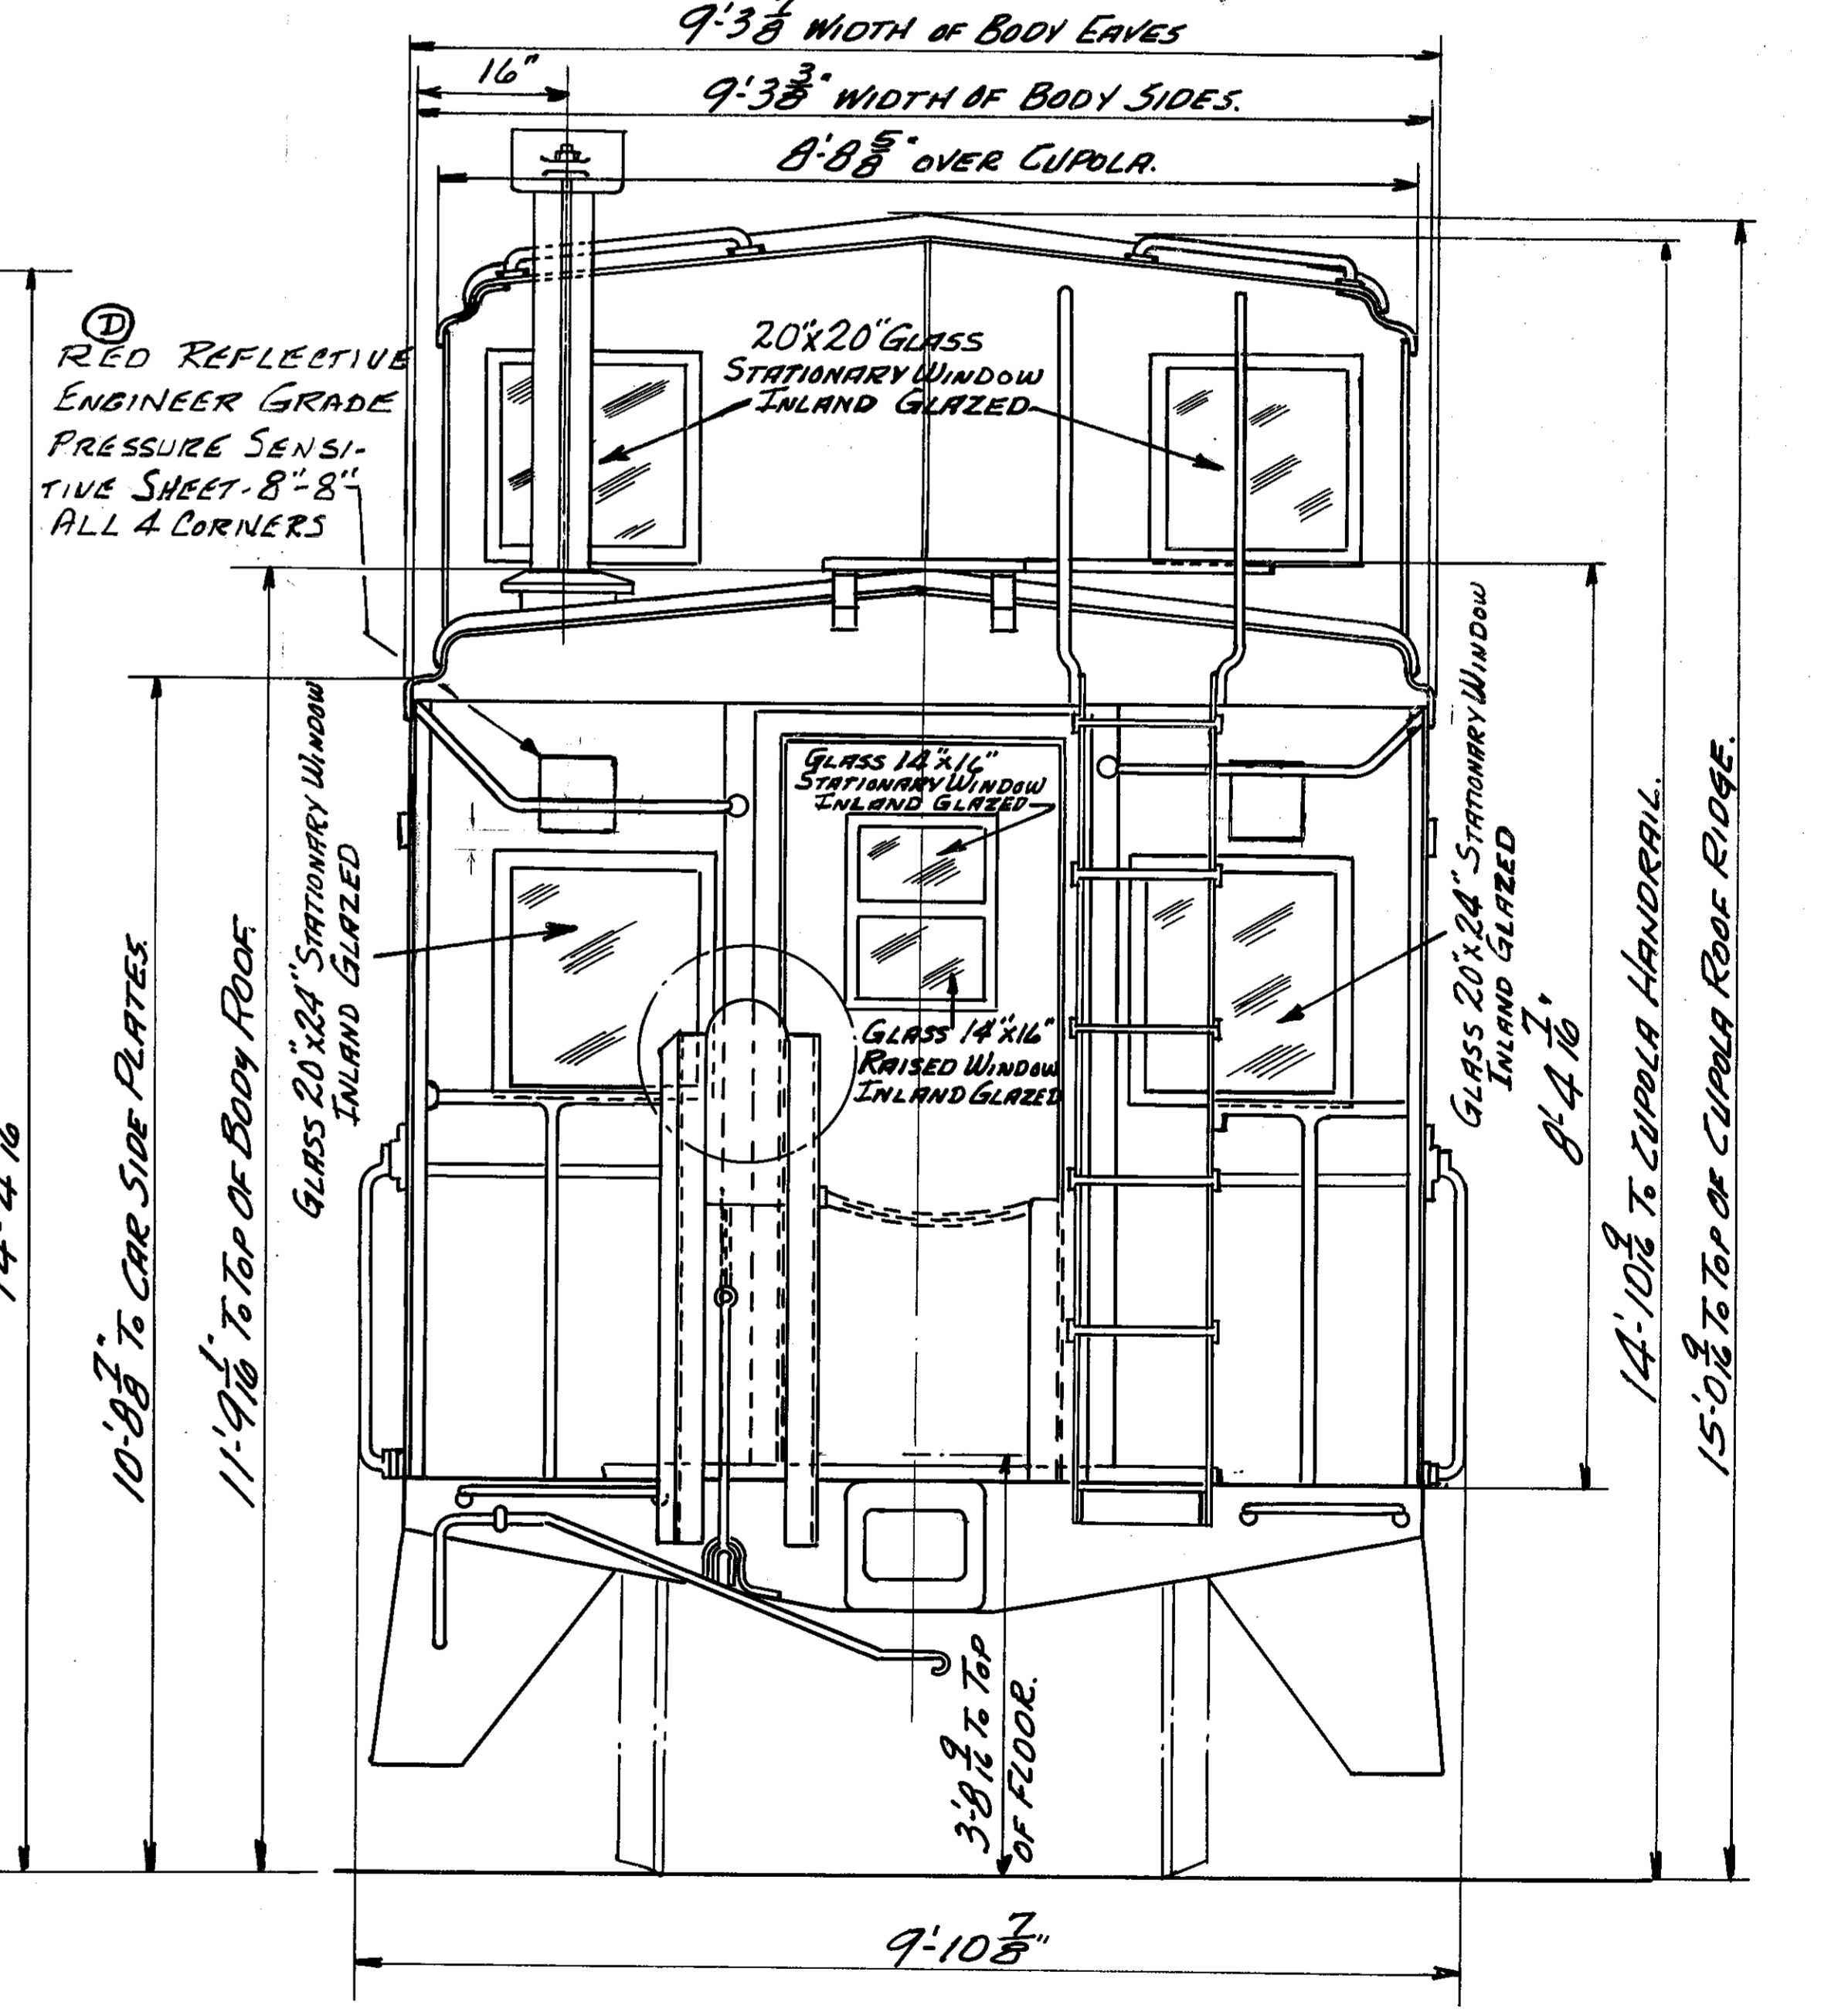 9'-3 7/8 WIDTH OF BODY EAVES
16"
9'-3 3/8" WIDTH OF BODY SIDES.
8'-8 5/8" OVER CUPOLA.
D
RED REFLECTIVE
ENGINEER GRADE
PRESSURE SENSI-
TIVE SHEET-8"-8"
ALL 4 CORNERS
20"x20" GLASS
STATIONARY WINDOW
INLAND GLAZED
GLASS 14"x16"
STATIONARY WINDOW
INLAND GLAZED
GLASS 14"x16"
RAISED WINDOW
INLAND GLAZED
GLASS 20"x24" STATIONARY WINDOW
INLAND GLAZED
GLASS 20"x24" STATIONARY WINDOW
INLAND GLAZED
8'-4 7/16"
10'-8 7/8" TO CAR SIDE PLATES.
11'-9 1/16" TO TOP OF BODY ROOF.
14'-10 9/16 TO CUPOLA HANDRAIL.
15'-0 9/16 TO TOP OF CUPOLA ROOF RIDGE.
3'-8 9/16 TO TOP
OF FLOOR.
9'-10 7/8"